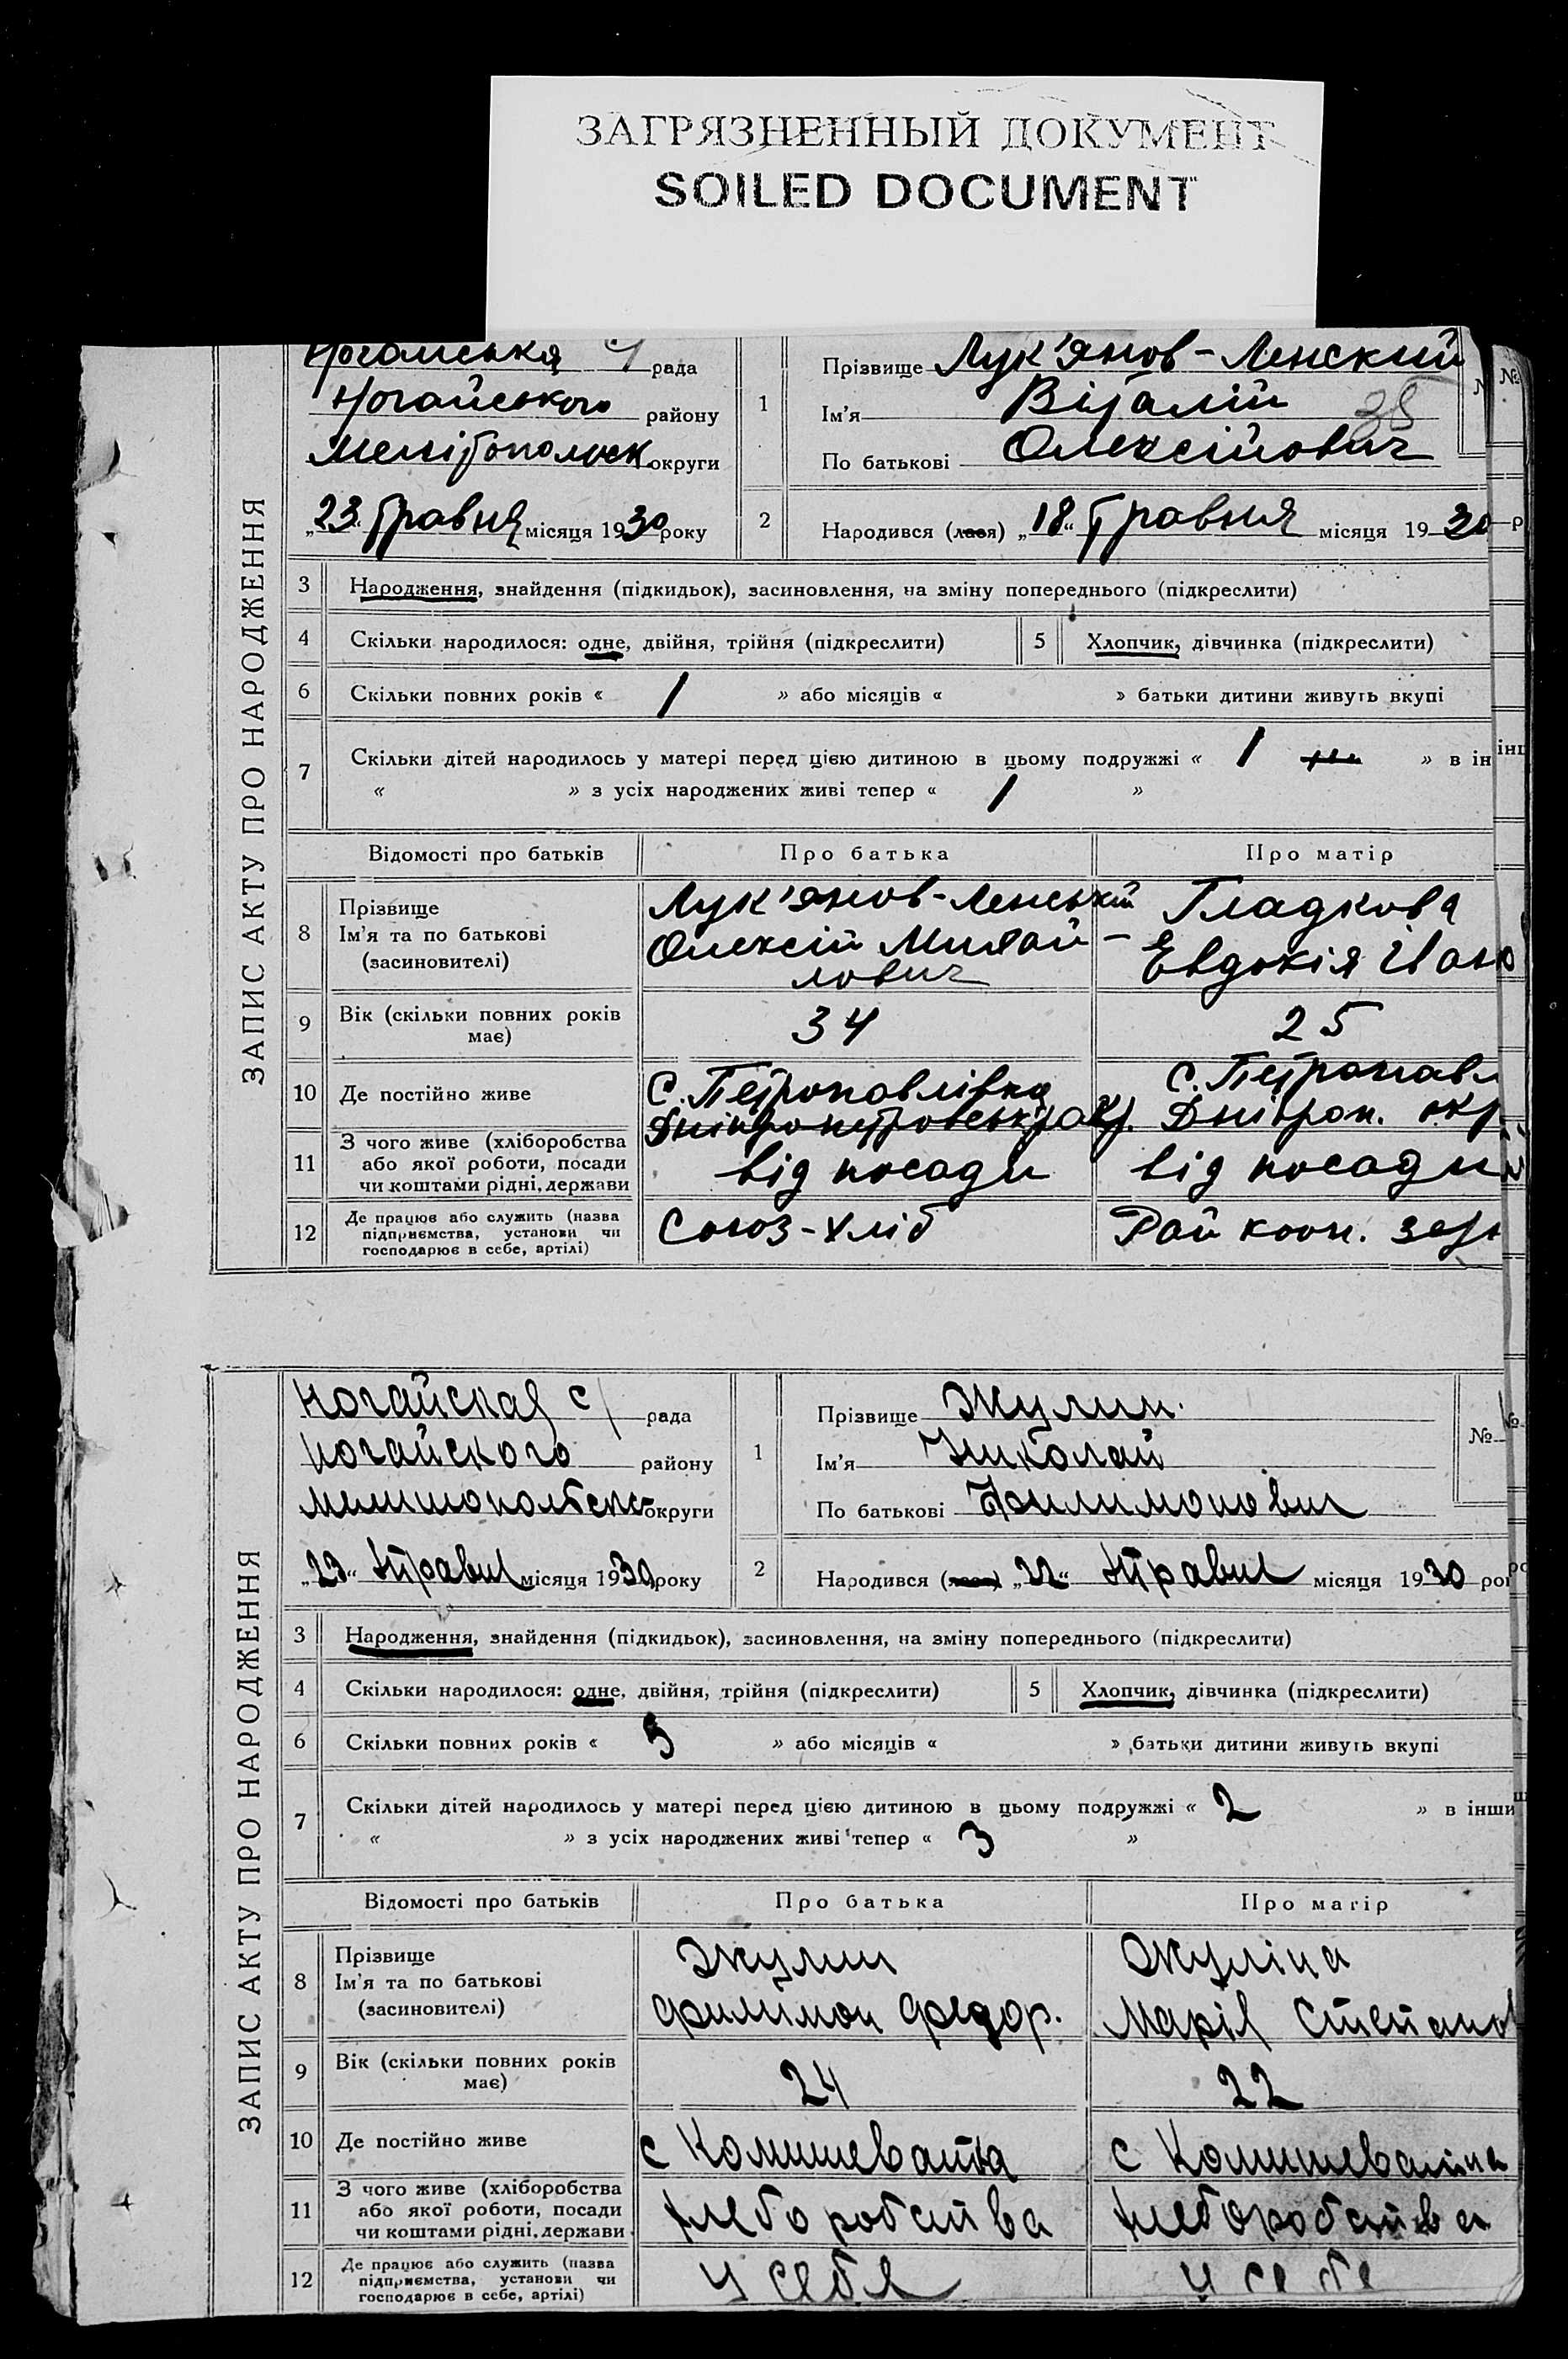 ЗАГРЯЗНЕННЫЙ ДОКУМЕНТ
SOILED DOCUMENT
ЗАПИС АКТУ ПРО НАРОДЖЕННЯ
Ногайська с/рада
Ногайського району
Мелітопольськ округи
„23“ Травня місяця 1930 року
1
Прізвище Лук'янов-Ленский
Ім'я Віталій
38
По батькові Олексійович
2
Народився (лася) „18“ Травня місяця 1930
3 Народження, знайдення (підкидьок), засиновлення, на зміну попереднього (підкреслити)
4 Скільки народилося: одне, двійня, трійня (підкреслити)
5 Хлопчик, дівчинка (підкреслити)
6 Скільки повних років « 1 » або місяців « » батьки дитини живуть вкупі
7 Скільки дітей народилось у матері перед цією дитиною в цьому подружжі « 1 » в ін
« » з усіх народжених живі тепер « 1 »
Відомості про батьків Про батька Про матір
8 Прізвище
Ім'я та по батькові
(засиновителі)
Лук'янов-Ленський
Олексій Михай-
лович
Гладкова
Евдокія Івано
9 Вік (скільки повних років
має)
34
25
10 Де постійно живе
С. Петропавлівка
Дніпропетровськ окр.
с. Петропавл
Дніпроп. окр.
11 З чого живе (хліборобства
або якої роботи, посади
чи коштами рідні, держави
від посади
від посади
12 Де працює або служить (назва
підприємства, установи чи
господарює в себе, артілі)
Союз-хліб
Рай кооп.
ЗАПИС АКТУ ПРО НАРОДЖЕННЯ
Ногайская с/рада
Ногайского району
округи
„23“ Травня місяця 1930 року
1
Прізвище Жулин
Ім'я Николай
По батькові Филимонович
№
2
Народився (лася) „22“ Травня місяця 1930 ро
3 Народження, знайдення (підкидьок), засиновлення, на зміну попереднього (підкреслити)
4 Скільки народилося: одне, двійня, трійня (підкреслити)
5 Хлопчик, дівчинка (підкреслити)
6 Скільки повних років « 5 » або місяців « » батьки дитини живуть вкупі
7 Скільки дітей народилось у матері перед цією дитиною в цьому подружжі « 2 » в інши
« » з усіх народжених живі тепер « 3 »
Відомості про батьків Про батька Про матір
8 Прізвище
Ім'я та по батькові
(засиновителі)
Жулин
Филимон Федор.
Жуліна
Марія Степанов
9 Вік (скільки повних років
має)
24
22
10 Де постійно живе
с Комишевата
с Комишевата
11 З чого живе (хліборобства
або якої роботи, посади
чи коштами рідні, держави
хлеборобства
хлеборобства
12 Де працює або служить (назва
підприємства, установи чи
господарює в себе, артілі)
У себя
У себе